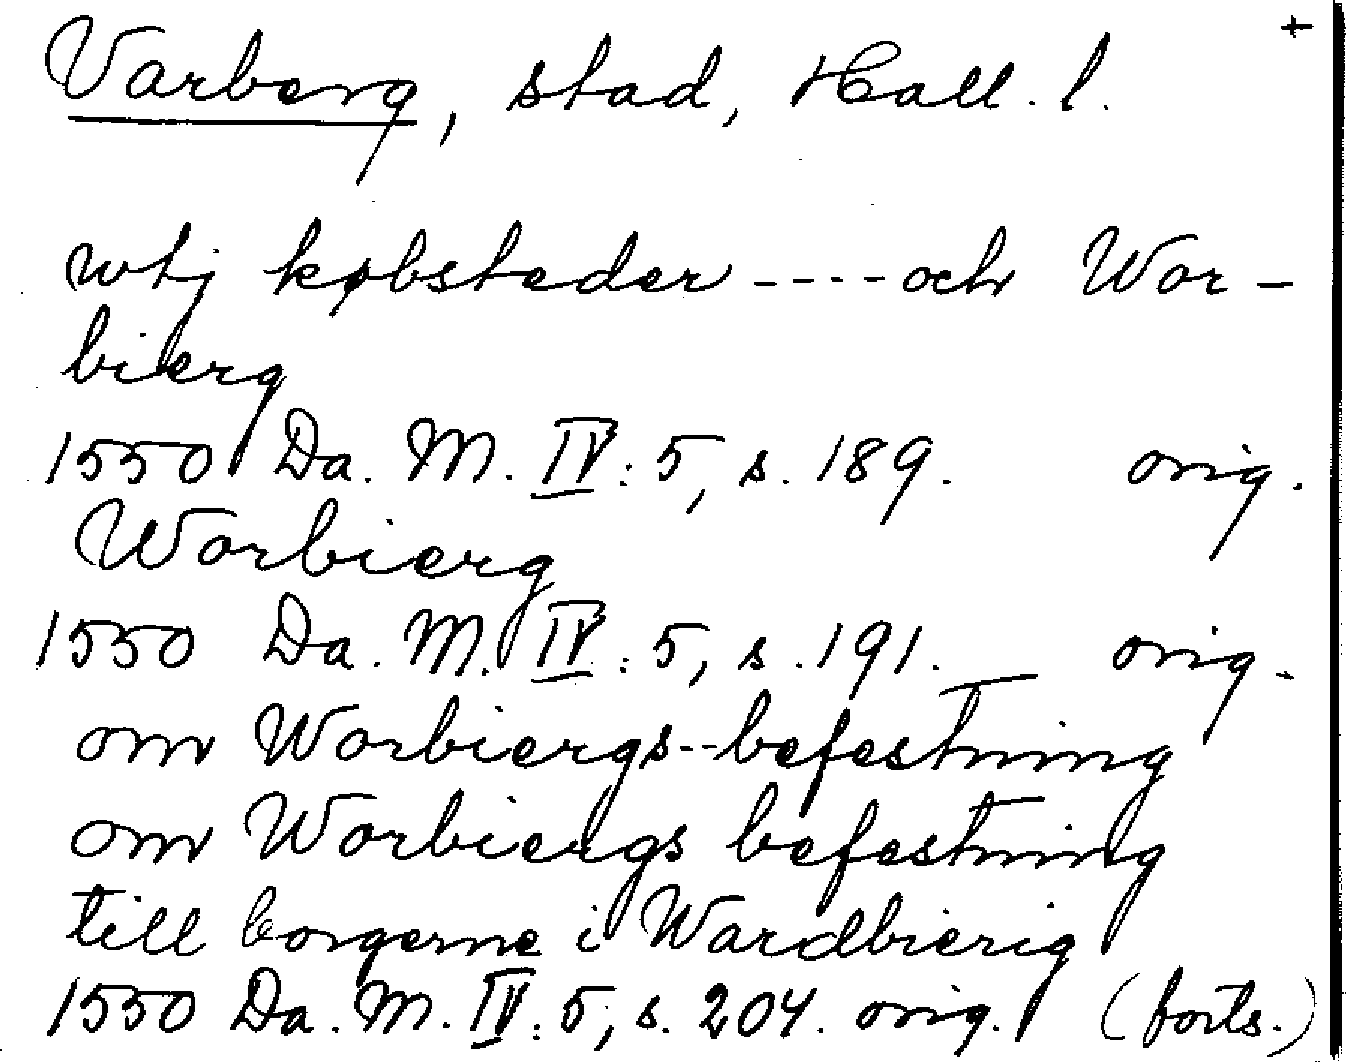 +
Varberg, stad, Hall. l.
wtj købsteder ---- och Wor-
bierg
1550 Da. M. IV: 5, s. 189. orig.
Worbierg
1550 Da. M. IV: 5, s. 191. orig.
om Worbiergs--befestning
om Worbiergs befestning
till borgerne i Wardbierig
1550 Da. M. IV: 5, s. 204. orig. (forts.)